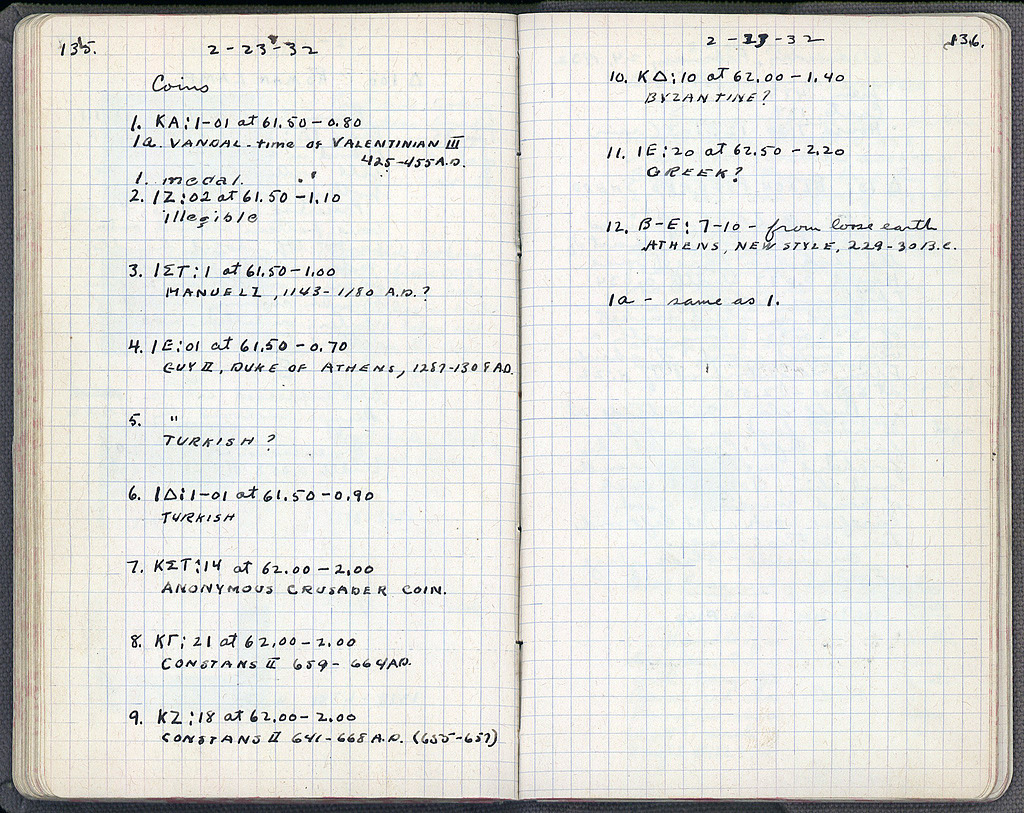 135. 2-23-32
Coins
1. KA:1-01 at 61.50-0.80
1a. VANDAL-time of VALENTINIAN III
425-455 A.D.
1. medal.
2. IZ:02 at 61.50-1.10
illegible
3. IΣT:1 at 61.50-1.00
MANUEL I, 1143-1180 A.D.?
4. IE:01 at 61.50-0.70
GUY II, DUKE OF ATHENS, 1287-1308 A.D.
5. "
TURKISH ?
6. IΔ:1-01 at 61.50-0.90
TURKISH
7. KΣT:14 at 62.00-2.00
ANONYMOUS CRUSADER COIN.
8. KΓ:21 at 62.00-2.00
CONSTANS II 659-664 A.D.
9. KZ:18 at 62.00-2.00
CONSTANS II 641-668 A.D. (655-657)
2-23-32 136.
10. KΔ:10 at 62.00-1.40
BYZANTINE?
11. IE:20 at 62.50-2.20
GREEK?
12. B-E:7-10 - from loose earth
ATHENS, NEW STYLE, 229-30 B.C.
1a - same as 1.